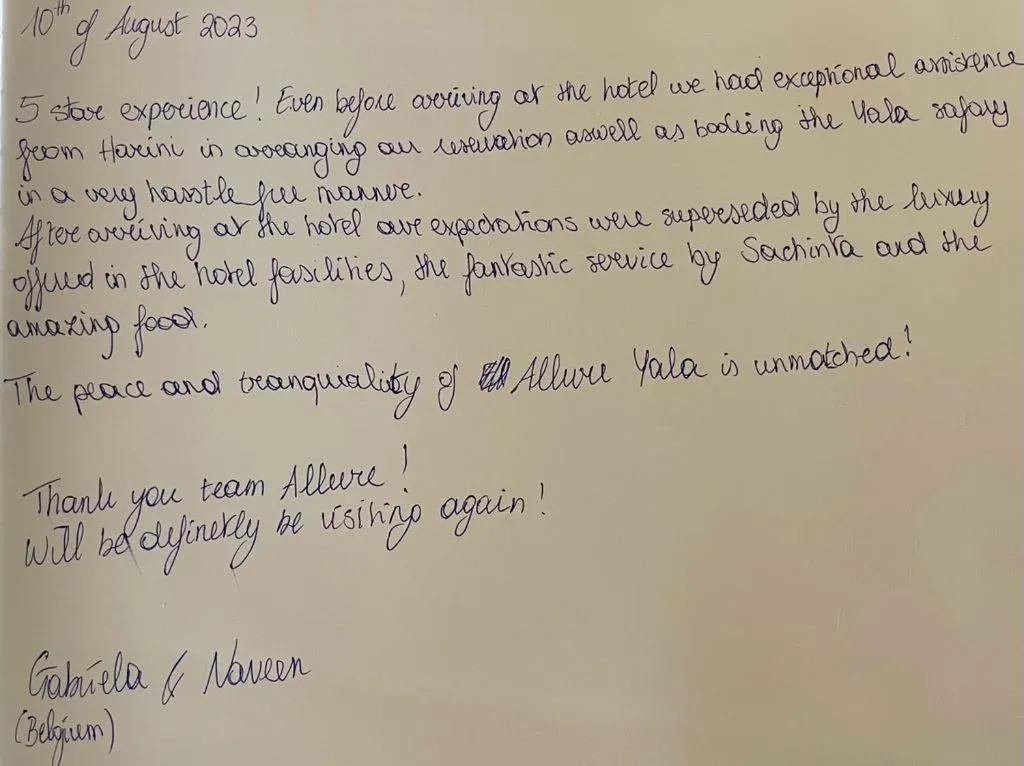 10th of August 2023
5 star experience! Even before arriving at the hotel we had exceptional assistence
from Harini in arranging our reservation aswell as booking the Yala safary
in a very hasstle free manner.
After arriving at the hotel our expectations were superseded by the luxury
offered in the hotel fasilities, the fantastic service by Sachinta and the
amazing food.
The peace and tranquiality of Allure Yala is unmatched!
Thank you team Allure!
Will be definetely be visiting again!
Gabriela & Naveen
(Belgium)